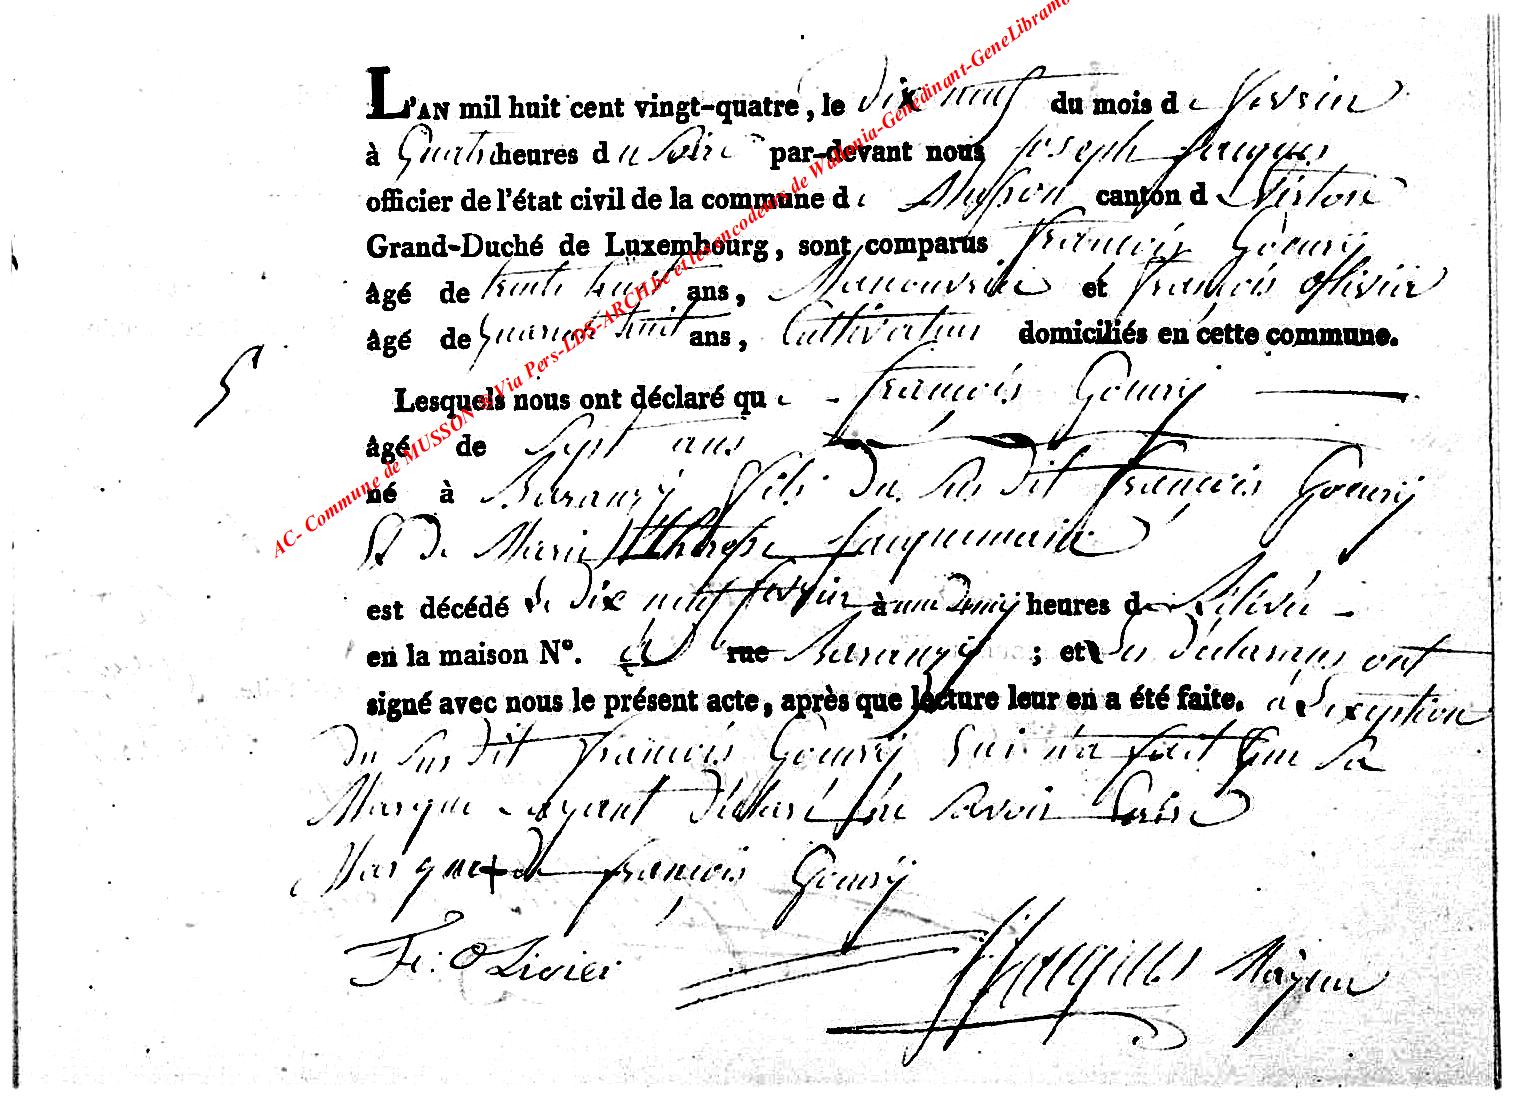 L'AN mil huit cent vingt-quatre, le dix neuf du mois de fevrier
à Quatre heures du soire par-devant nous Joseph Jacques
officier de l'état civil de la commune de Musson canton de Virton
Grand-Duché de Luxembourg, sont comparus françois Goury
âgé de trente huit ans, Manouvrier et françois Ollivier
âgé de quarante huit ans, Cultivateur domiciliés en cette commune.
5
Lesquels nous ont déclaré que françois Goury
âgé de sept ans
né à Baranzy fils du sus dit françois Goury
Et de Marie Therese Jacquemin
est décédé le dix neuf fevrier à heures de
en la maison N°. à rue Baranzy ; et les déclarans ont
signé avec nous le présent acte, après que lecture leur en a été faite. à l'exeption
du sus dit francois Goury qui n'a fait que sa
Marque ayant déclaré ne savoir
Marque + de françois Goury
Fr: OLivier Jacques Mayeur
AC- Commune de MUSSON @Via Pers-LDS-ARCH.be et les encodeurs de Wallonia-Genedinant-GeneLibramo